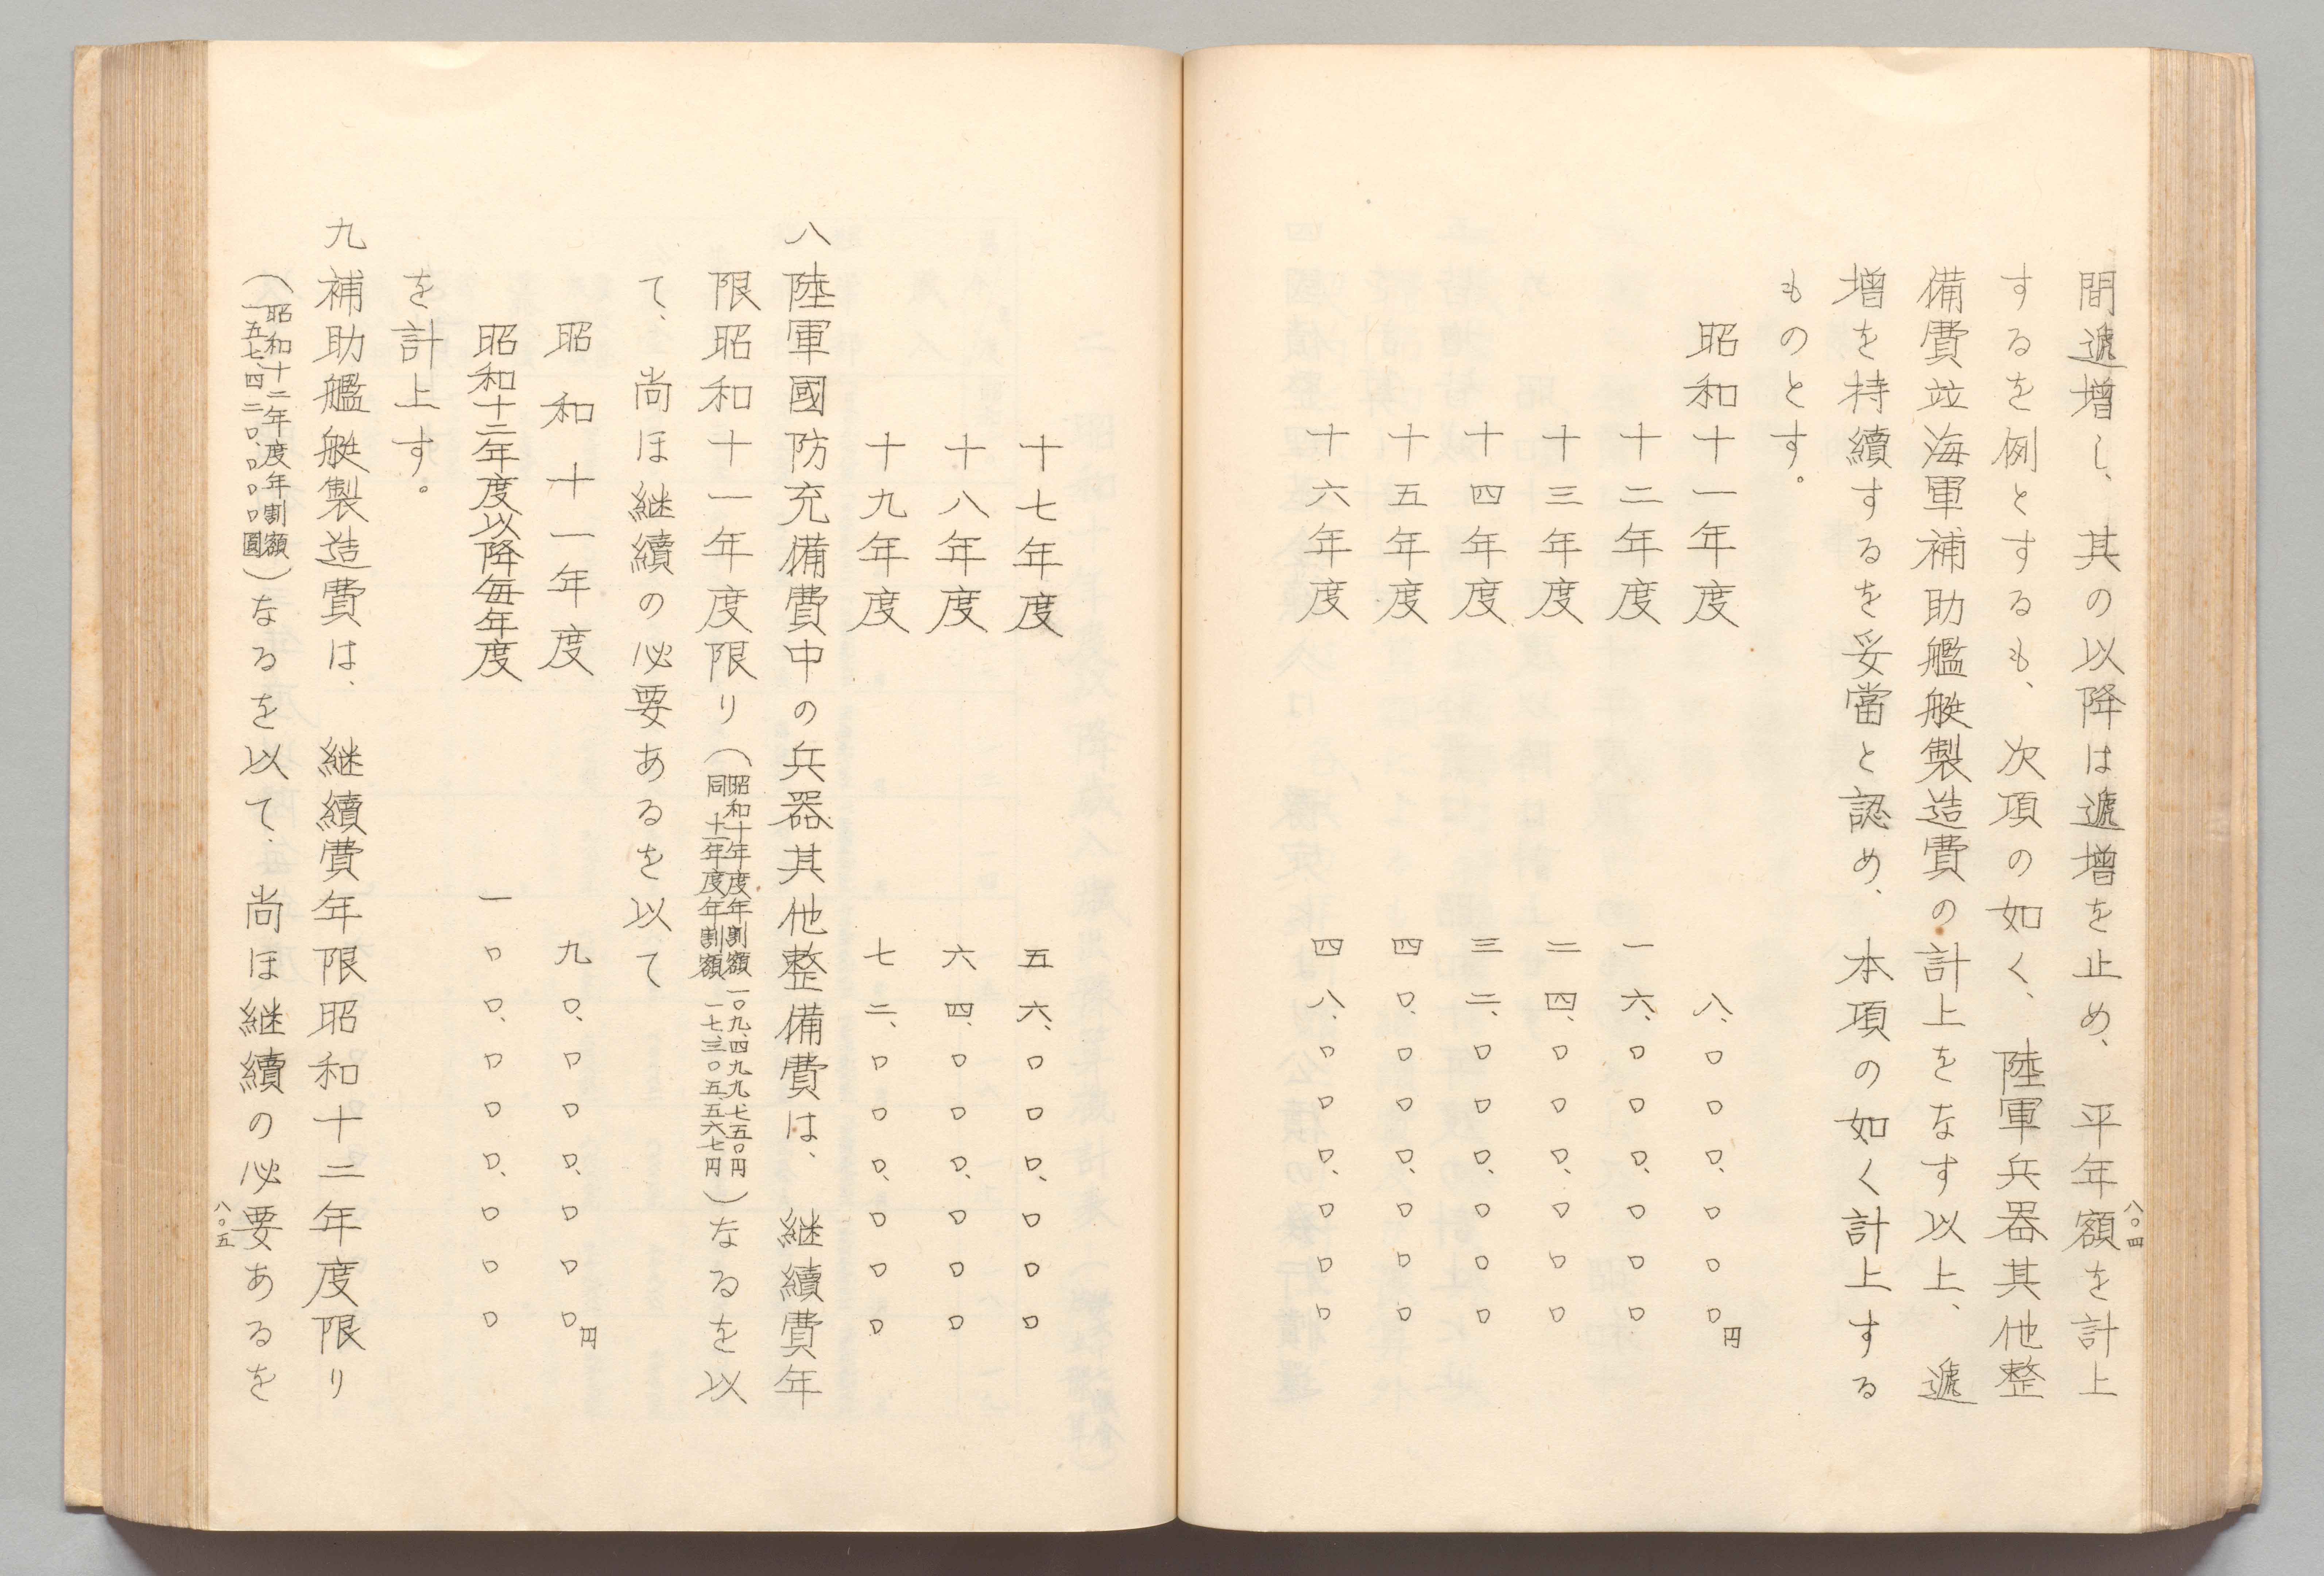 八〇四
間遞増し、其の以降は遞増を止め、平年額を計上
するを例とするも、次項の如く、陸軍兵器其他整
備費竝海軍補助艦艇製造費の計上をなす以上、遞
増を持續するを妥當と認め、本項の如く計上する
ものとす。
昭和十一年度 八、〇〇〇、〇〇〇円
十二年度 一六、〇〇〇、〇〇〇
十三年度 二四、〇〇〇、〇〇〇
十四年度 三二、〇〇〇、〇〇〇
十五年度 四〇、〇〇〇、〇〇〇
十六年度 四八、〇〇〇、〇〇〇
十七年度 五六、〇〇〇、〇〇〇
十八年度 六四、〇〇〇、〇〇〇
十九年度 七二、〇〇〇、〇〇〇
八 陸軍國防充備費中の兵器其他整備費は、継續費年
限昭和十一年度限り(昭和十年度年割額 一〇九、四九九、七五〇円 同 十一年度年割額 一七、三〇五、五六七円)なるを以
て、尚ほ継續の必要あるを以て
昭和十一年度 九〇、〇〇〇、〇〇〇円
昭和十二年度以降毎年度 一〇〇、〇〇〇、〇〇〇
を計上す。
九 補助艦艇製造費は、継續費年限昭和十二年度限り
(昭和十二年度年割額 一五七、四二〇、〇〇〇圓)なるを以て、尚ほ継續の必要あるを
八〇五